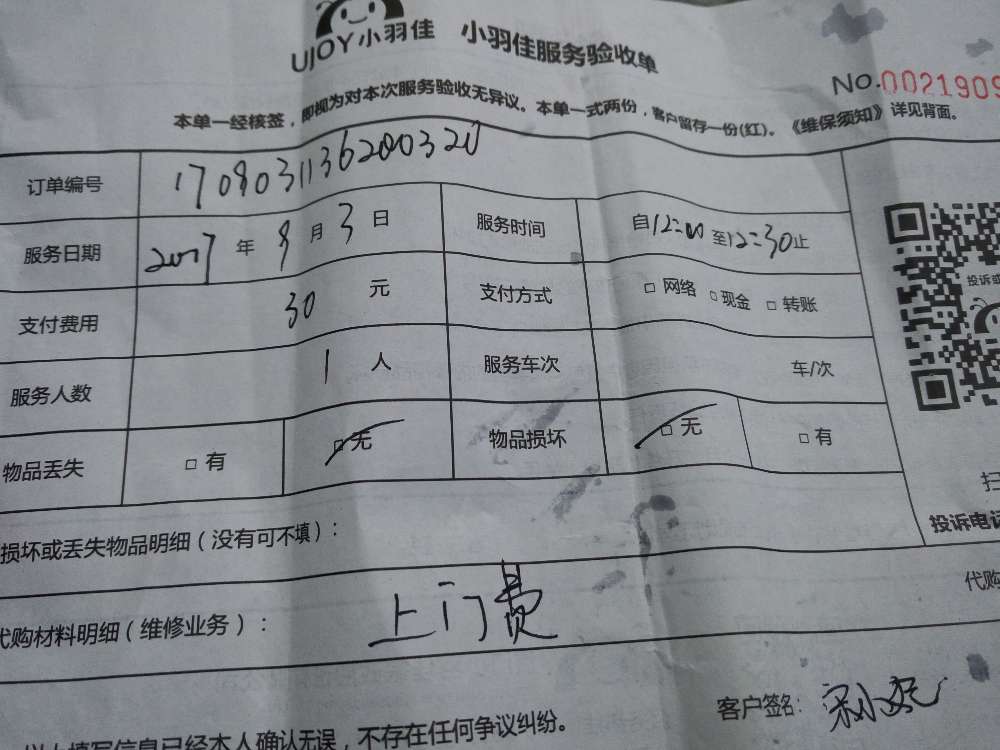 UJOY小羽佳 小羽佳服务验收单
No.0021909
本单一经核签，即视为对本次服务验收无异议。本单一式两份，客户留存一份(红)。《维保须知》详见背面。
订单编号 170803113620320
服务日期 2017 年 8 月 3 日 服务时间 自12:00至12:30止
支付费用 30 元 支付方式 □ 网络 □ 现金 □ 转账
服务人数 1 人 服务车次 车/次
物品丢失 □ 有 □ 无 物品损坏 □ 无 □ 有
投诉或
扫
投诉电话
损坏或丢失物品明细（没有可不填）：
代购材料明细（维修业务）： 上门费 代购
客户签名：
以上填写信息已经本人确认无误，不存在任何争议纠纷。